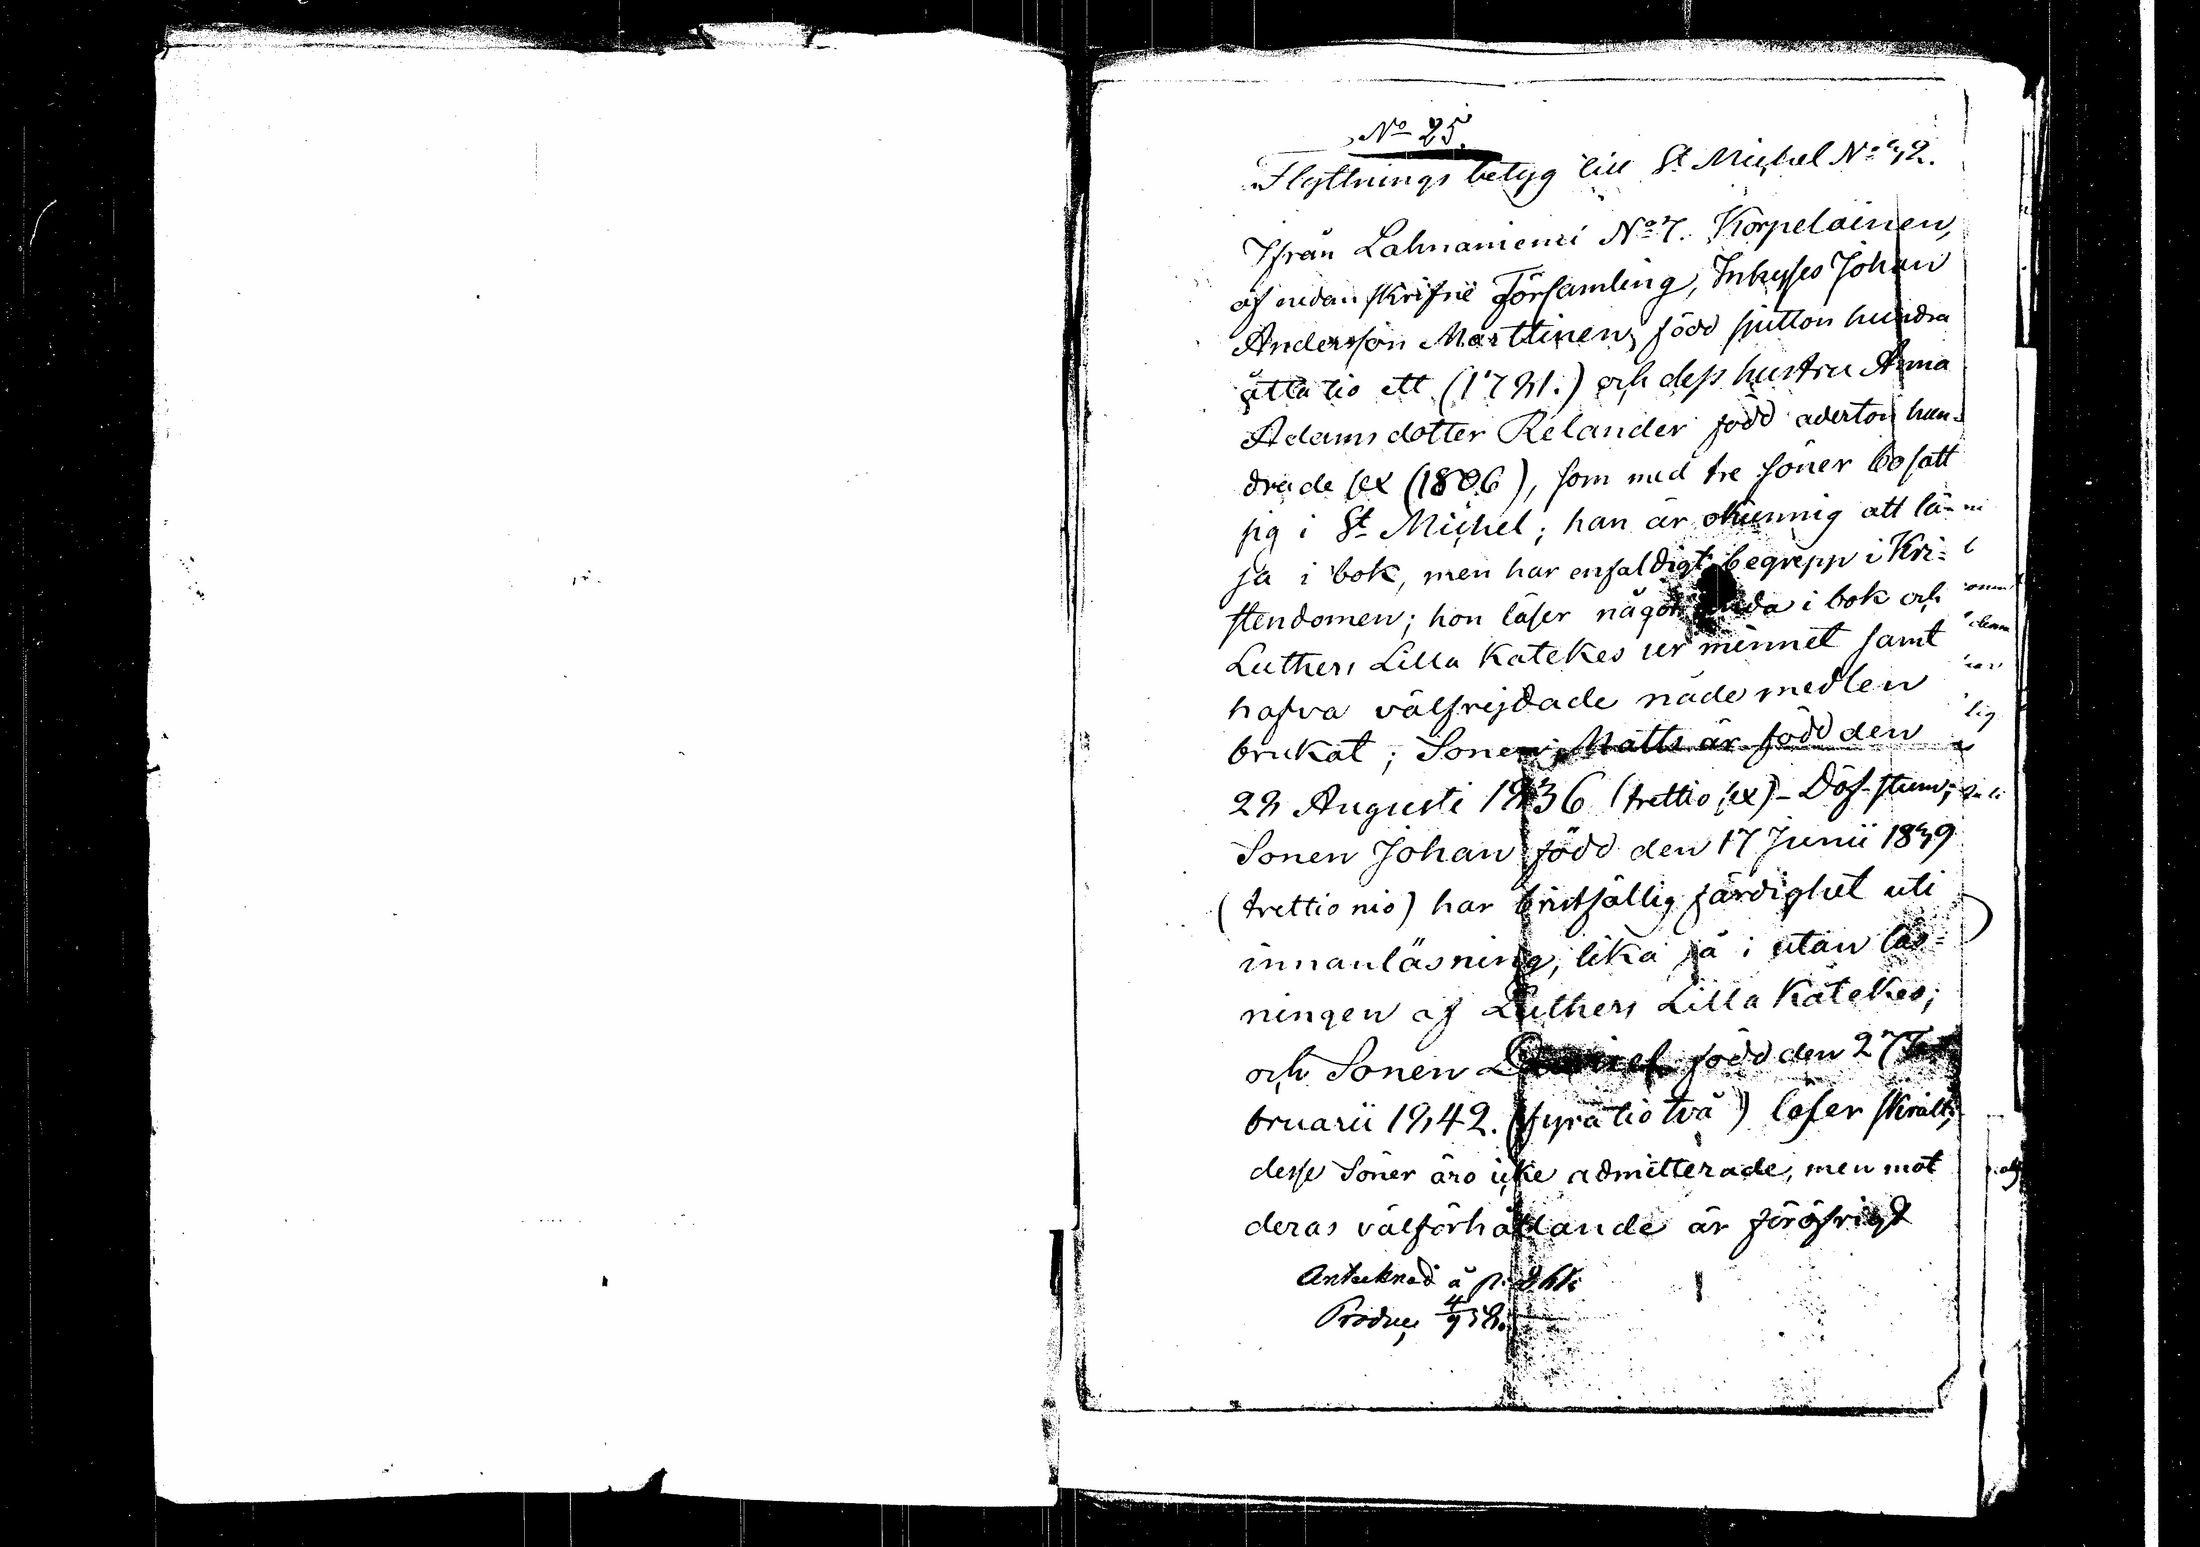 No 25.
Flyttnings betyg till St Michel No 32.
Ifrån Lahnaniemi No 7. Korpelainen,
af nedanskrifne Församling, Inhyses Johan
Andersson Marttinen, född sjutton hundra
åttatio ett (1781.) och dess hustru Anna
Adamsdotter Relander född aderton hun-
drade sex (1806), som med tre söner bosatt
sig i St Michel; han är okunnig att lä-
sa i bok, men har enfaldigt begrepp i Kri-
stendomen; hon läser någorlunda i bok och
Luthers Lilla Katekes ur minnet samt
hafva välfrejdade nådemedlen
brukat; Sonen Matts är född den
28 Augusti 1836 (trettio sex) - Döf-stum;
Sonen Johan född den 17 Junii 1839
(trettio nio) har bristfällig färdighet uti
innanläsning, lika så i utan läs-
ningen af Luthers Lilla Katekes;
och Sonen Daniel född den 27 Fe-
bruarii 1842. (fyratio två) läser skralt;
desse Söner äro icke admitterade, men mot
deras välförhållande är föröfrigt
Antecknad å p.
Produc 4/9 58.